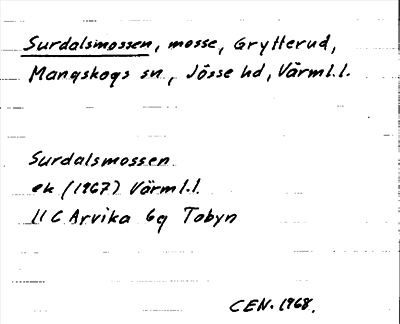 Surdalsmossen, mosse, Grytterud,
Mangskogs sn, Jösse hd, Värml.l.
Surdalsmossen
ek (1967) Värml.l.
11 C Arvika 6g Tobyn
CEN. 1968.